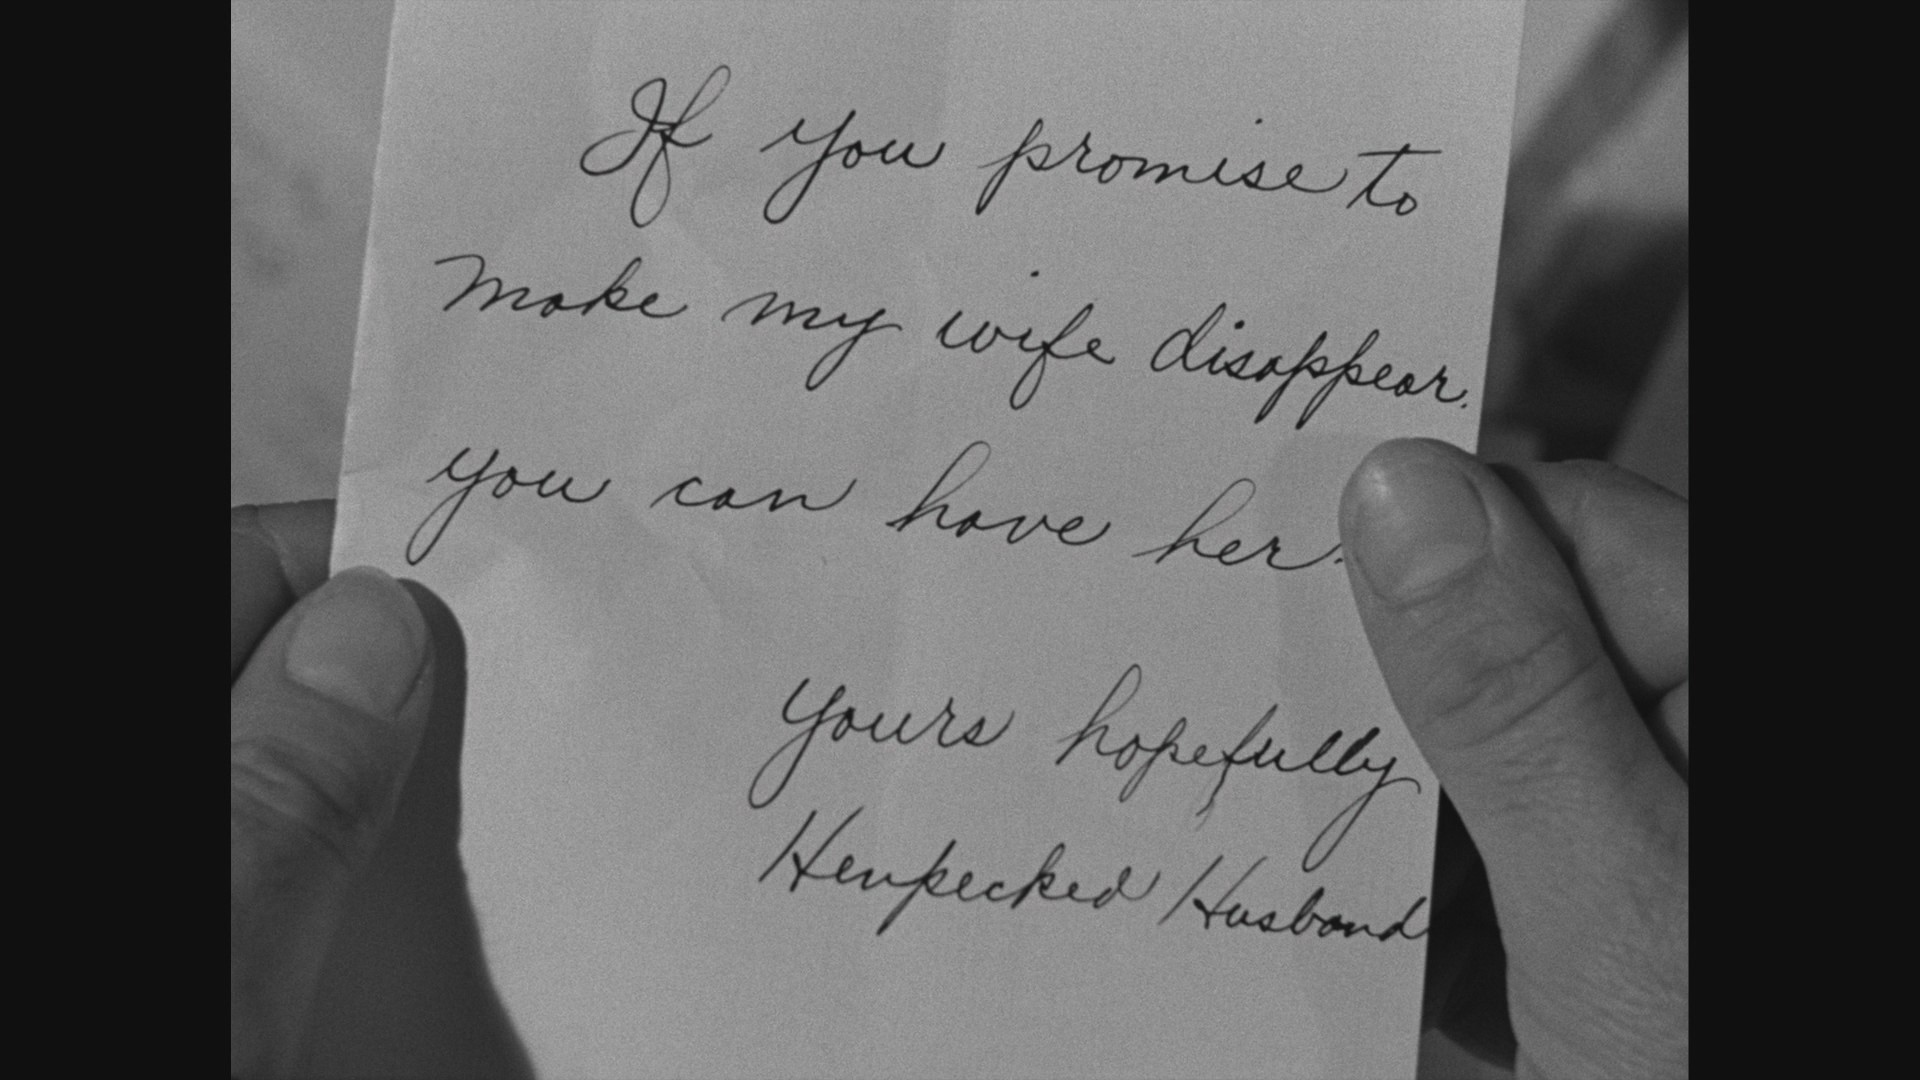 If you promise to
make my wife disappear.
you can have her.
yours hopefully
Henpecked Husband